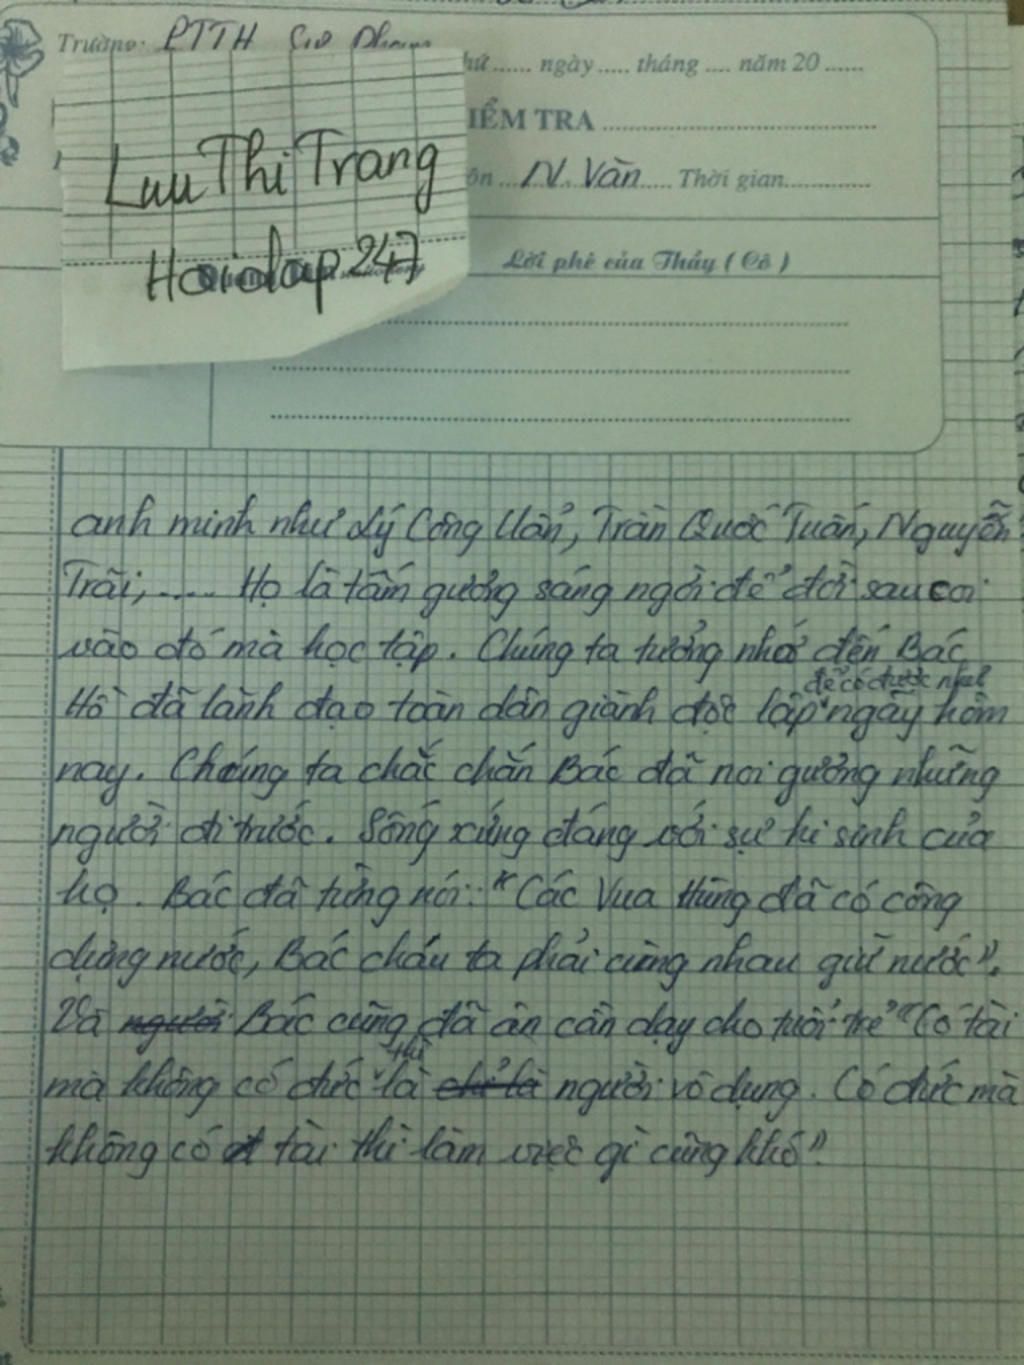 Trường: PTTH
ngày ..... tháng .... năm 20 ......
IỂM TRA ..............
N. Văn Thời gian..............
Lưu Thị Trang
Hoidap 247
Lời phê của Thầy ( Cô )
anh minh như Lý Công Uẩn, Trần Quốc Tuấn, Nguyễn
Trãi, ..... Họ là tấm gương sáng ngời để đời sau coi
vào đó mà học tập. Chúng ta tưởng nhớ đến Bác
để có được như
Hồ đã lãnh đạo toàn dân giành độc lập ngày hôm
nay. Chúng ta chắc chắn Bác đã noi gương những
người đi trước. Sống xứng đáng với sự hi sinh của
họ. Bác đã từng nói: "Các Vua Hùng đã có công
dựng nước, Bác cháu ta phải cùng nhau giữ nước".
Và người Bác cũng đã ân cần dạy cho tuổi trẻ "Có tài
thì
mà không có đức là chỉ là người vô dụng. Có đức mà
không có tài thì làm việc gì cũng khó"